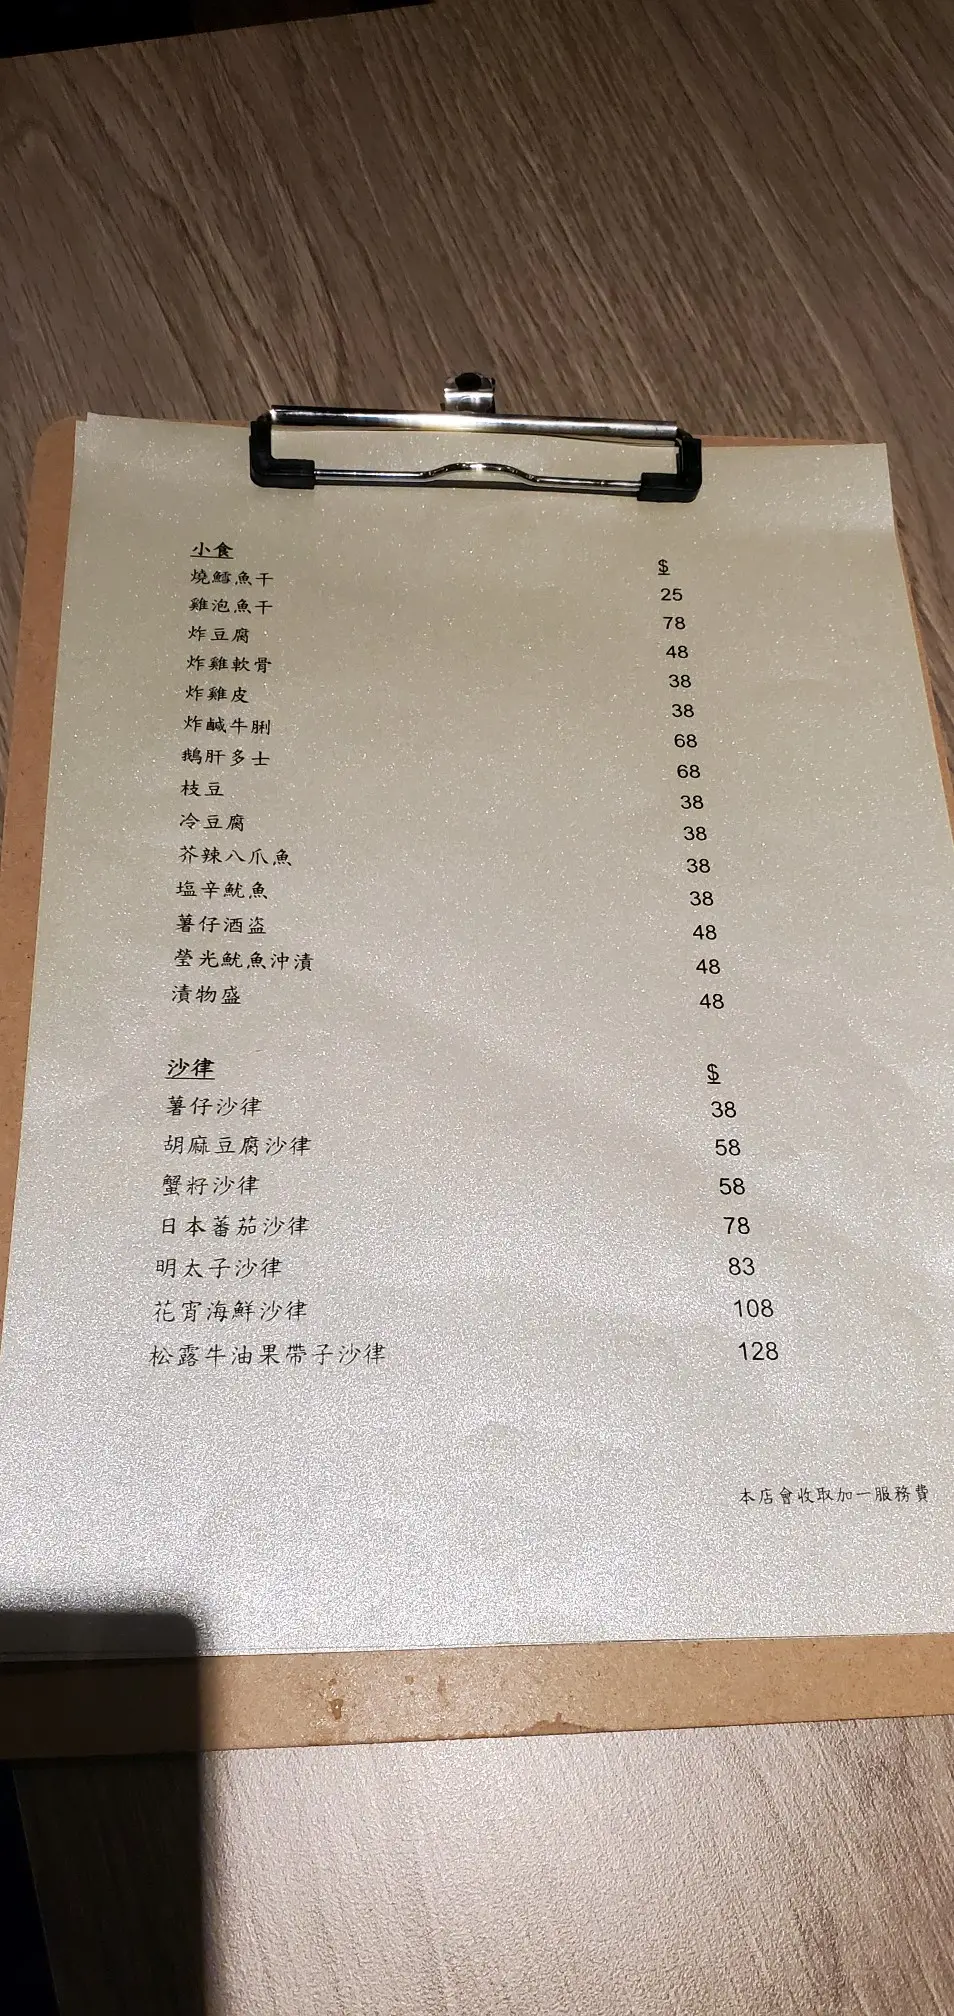 小食 $
燒鱈魚干 25
雞泡魚干 78
炸豆腐 48
炸雞軟骨 38
炸雞皮 38
炸鹹牛脷 68
鵝肝多士 68
枝豆 38
冷豆腐 38
芥辣八爪魚 38
塩辛魷魚 38
薯仔酒盗 48
瑩光魷魚沖漬 48
漬物盛 48
沙律 $
薯仔沙律 38
胡麻豆腐沙律 58
蟹籽沙律 58
日本蕃茄沙律 78
明太子沙律 83
花宵海鮮沙律 108
松露牛油果帶子沙律 128
本店會收取加一服務費